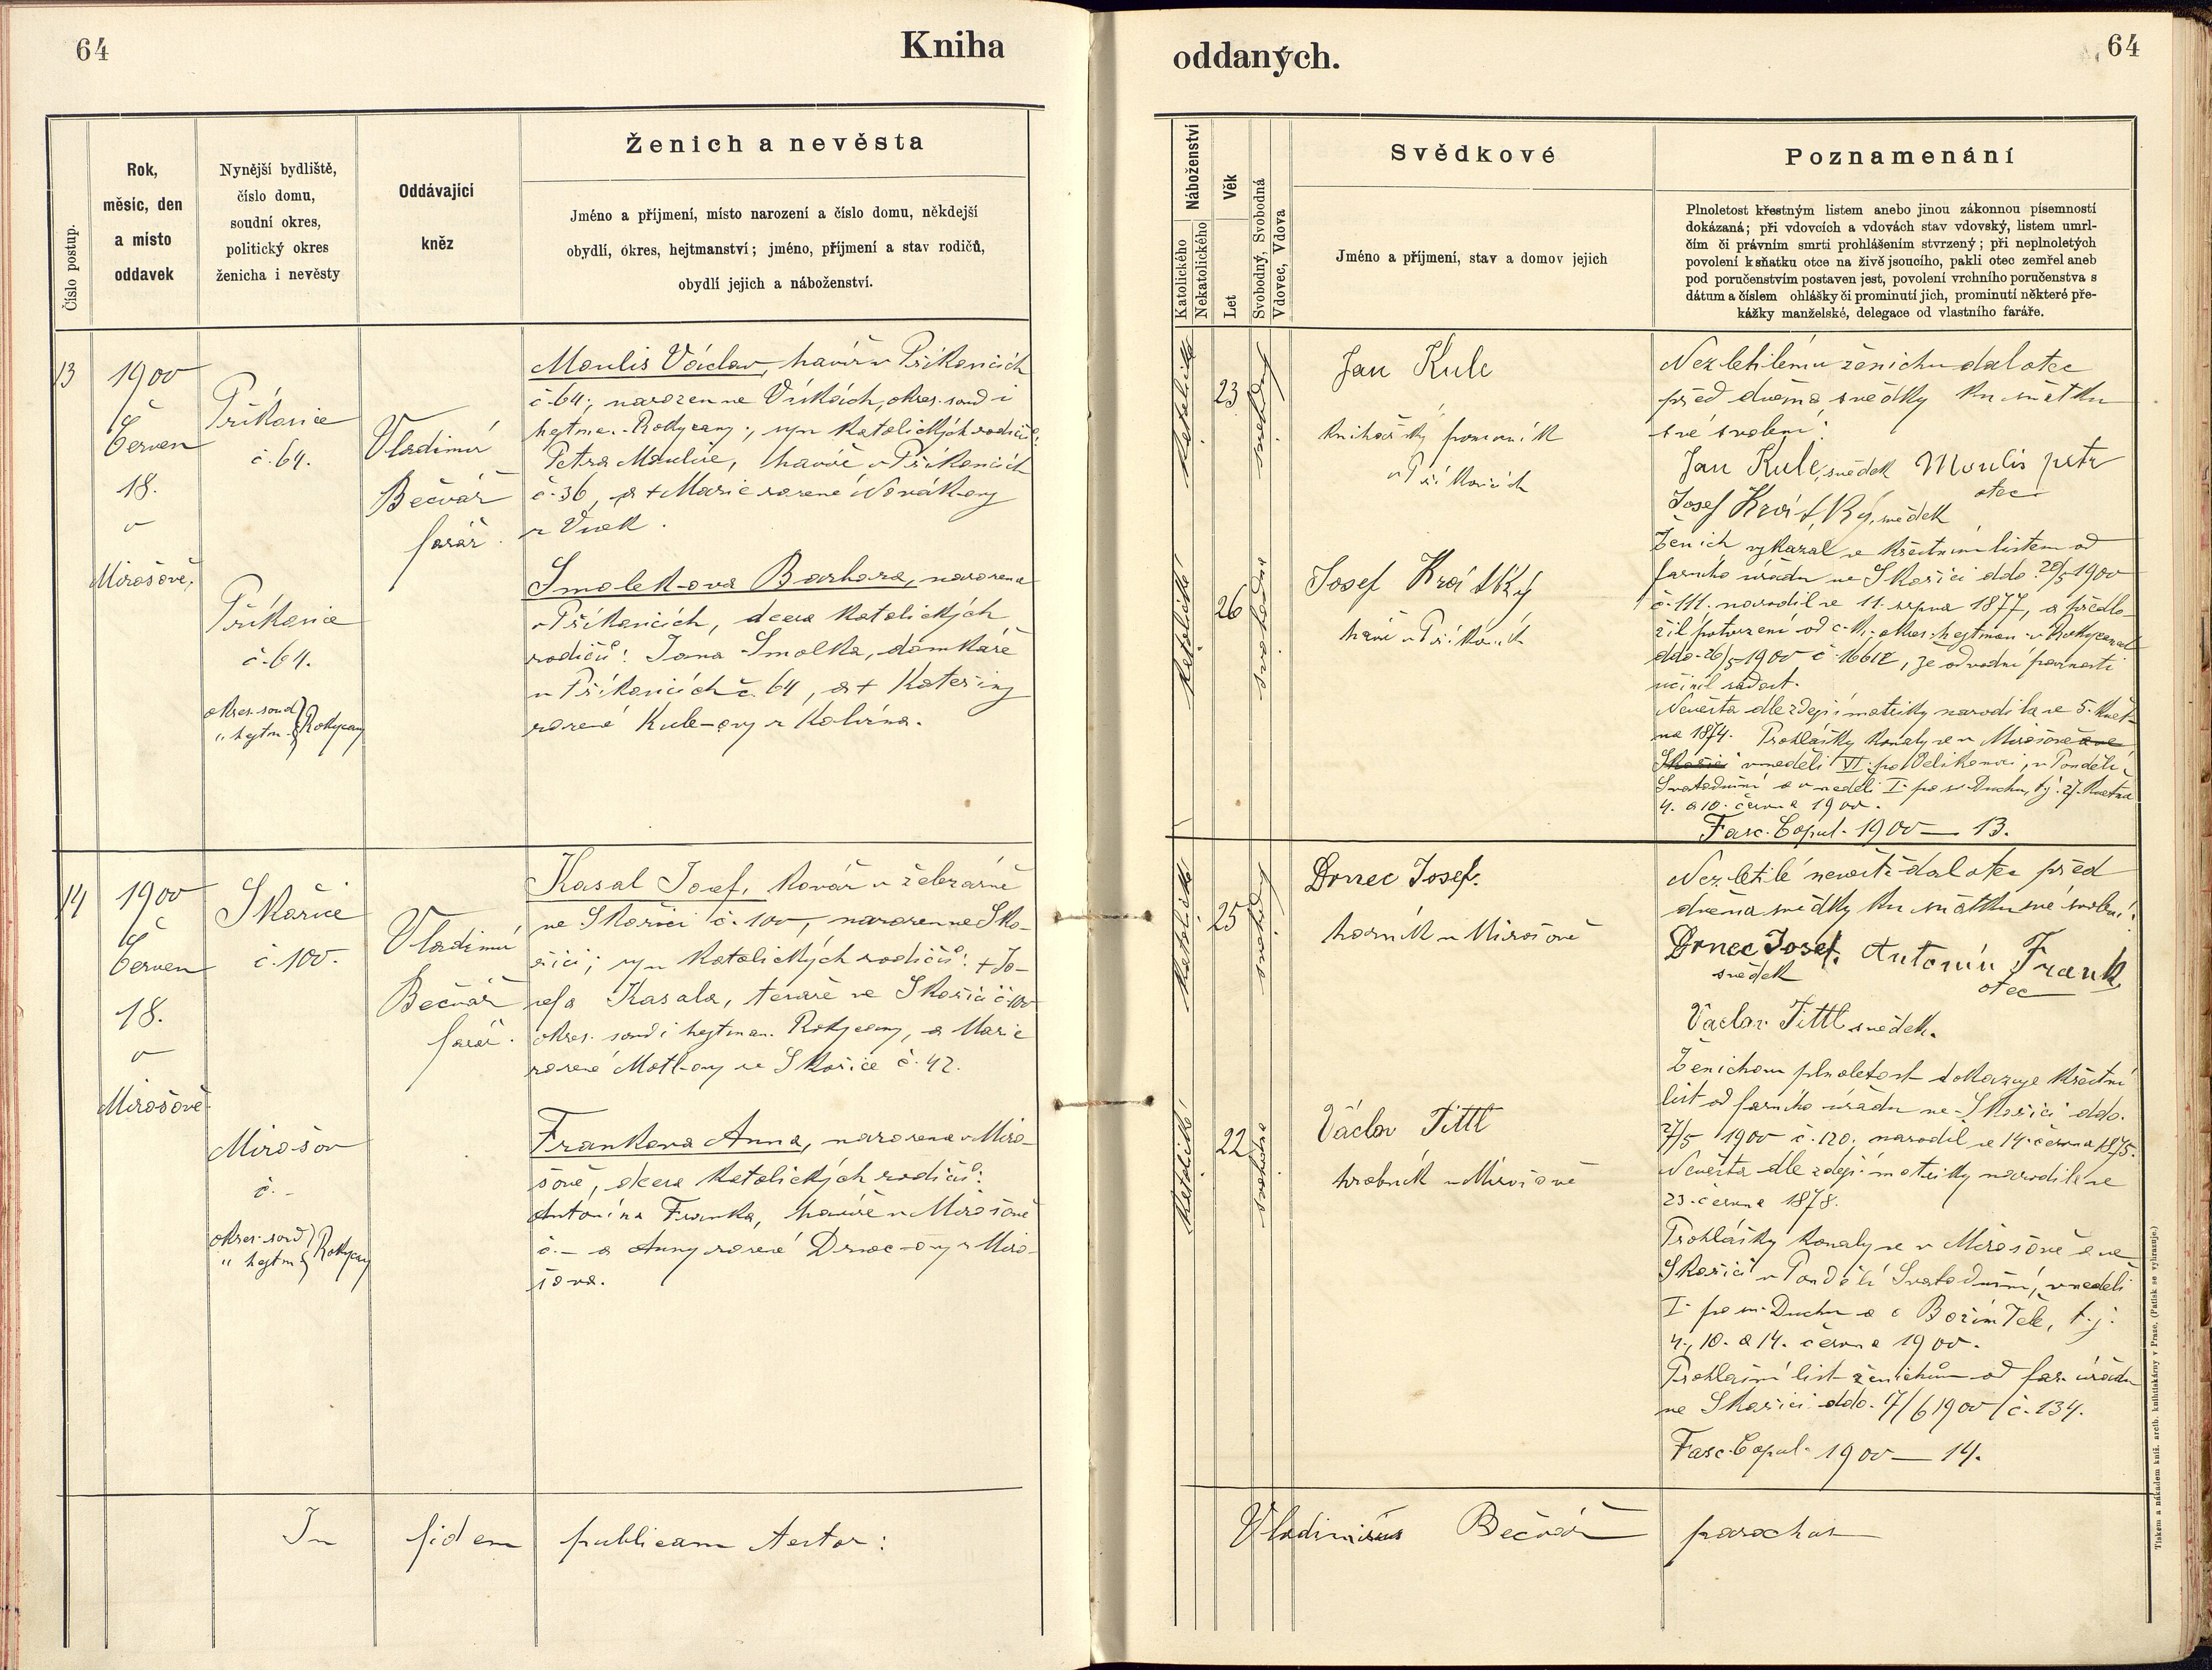 64
Kniha
oddaných.
64
Číslo postup.
Rok,
měsíc, den
a místo
oddavek
Nynější bydliště,
číslo domu,
soudní okres,
politický okres
ženicha i nevěsty
Oddávající
kněz
Ženich a nevěsta
Jméno a příjmení, místo narození a číslo domu, někdejší
obydlí, okres, hejtmanství; jméno, příjmení a stav rodičů,
obydlí jejich a náboženství.
13
1900
Červen
18.
v
Mirošově.
Příkosice
č. 64.
Příkosice
č. 64.
okres. soud
" hejtm. Rokycany
Vladimír
Bečvář
farář.
Moulis Václav, havíř v Příkosicích
č. 64, narozen ve Vískách, okres. soud i
hejtman. Rokycany, syn katolických rodičů:
Petra Moulise, havíře v Příkosicích
č. 36, a + Marie rozené Novákovy
z Vísek.
Smolek-ova Barbora, narozena
v Příkosicích, dcera katolických
rodičů: Jana Smolka, domkáře
v Příkosicích č. 64, a + Kateřiny
rozené Kule-ovy z Kolvína.
14
1900
Červen
18.
v
Mirošově.
Skořice
č. 100.
Mirošov
č. -
okres. soud
" hejtm. Rokycany
Vladimír
Bečvář
farář.
Kasal Josef, kovář v železárně
ve Skořici č. 100, narozen ve Sko-
řici; syn katolických rodičů: + Jo-
sefa Kasala, tesaře ve Skořici č. 100
okres. soud i hejtman. Rokycany, a Marie
rozené Motl-ovy ze Skořice č. 42.
Frankova Anna, narozena v Miro-
šově, dcera katolických rodičů:
Antonína Franka, havíře v Mirošově
č. - a Anny rozené Drnec-ovy z Miro-
šova.
In fidem publicam testor:
Náboženství
Katolického
Nekatolického
Věk
Let
Svobodný, Svobodná
Vdovec, Vdova
Svědkové
Jméno a příjmení, stav a domov jejich
Poznamenání
Plnoletost křestným listem anebo jinou zákonnou písemností
dokázaná; při vdovcích a vdovách stav vdovský, listem umrl-
čím či právním smrti prohlášením stvrzený; při neplnoletých
povolení k sňatku otce na živě jsoucího, pakli otec zemřel aneb
pod poručenstvím postaven jest, povolení vrchního poručenstva s
dátum a číslem ohlášky či prominutí jich, prominutí některé pře-
kážky manželské, delegace od vlastního faráře.
katolické
23
svobodný
katolické
26
svobodna
Jan Kule
knihařský pomocník
v Příkosicích
Josef Krátký
havíř v Příkosicích
Nezletilému ženichu dal otec
před dvěma svědky ku sňatku
své svolení:
Jan Kule, svědek Moulis petr
otec
Josef Krátký, svědek
Ženich vykázal se křestním listem od
farního úřadu ve Skořici ddo. 20/5 1900
č. 111. narodil se 11. srpna 1877, a předlo-
žil potvrzení od c. k. okres. hejtman. v Rokycanech
ddo. 26/5 1900 č. 16612, že odvodní povinnosti
učinil zadost.
Nevěsta dle zdejší matriky narodila se 5. květ-
na 1874. Prohlášky konaly se v Mirošově a ve
Skořici v neděli VI. po Velikonoci, v Pondělí
Svatodušní a v neděli I. po sv. Duchu, t. j. 27. května
4. a 10. června 1900.
Fasc. Copul. 1900 — 13.
katolické
25
svobodný
katolické
22
svobodna
Drnec Josef.
horník v Mirošově
Václav Tittl
hrobník v Mirošově
Nezletilé nevěstě dal otec před
dvěma svědky ku sňatku své svolení:
Drnec Josef. Antonín Frank
svědek otec
Václav Tittl svědek.
Ženichovu plnoletost dokazuje křestní
list od farního úřadu ve Skořici ddo.
27/5 1900 č. 120; narodil se 14. června 1875.
Nevěsta dle zdejší matriky narodila se
23. června 1878.
Prohlášky konaly se v Mirošově a ve
Skořici v Pondělí Svatodušní, v neděli
I. po sv. Duchu a o Božím Těle, t. j.
4., 10. a 14. června 1900.
Prohlašní list ženichův od far. úřadu
ve Skořici ddo. 17/6 1900 č. 134.
Fasc. Copul. 1900 — 14.
Vladimirus Bečvář parochus
Tiskem a nákladem kníž. arcib. knihtiskárny v Praze. (Patisk se vyhrazuje.)